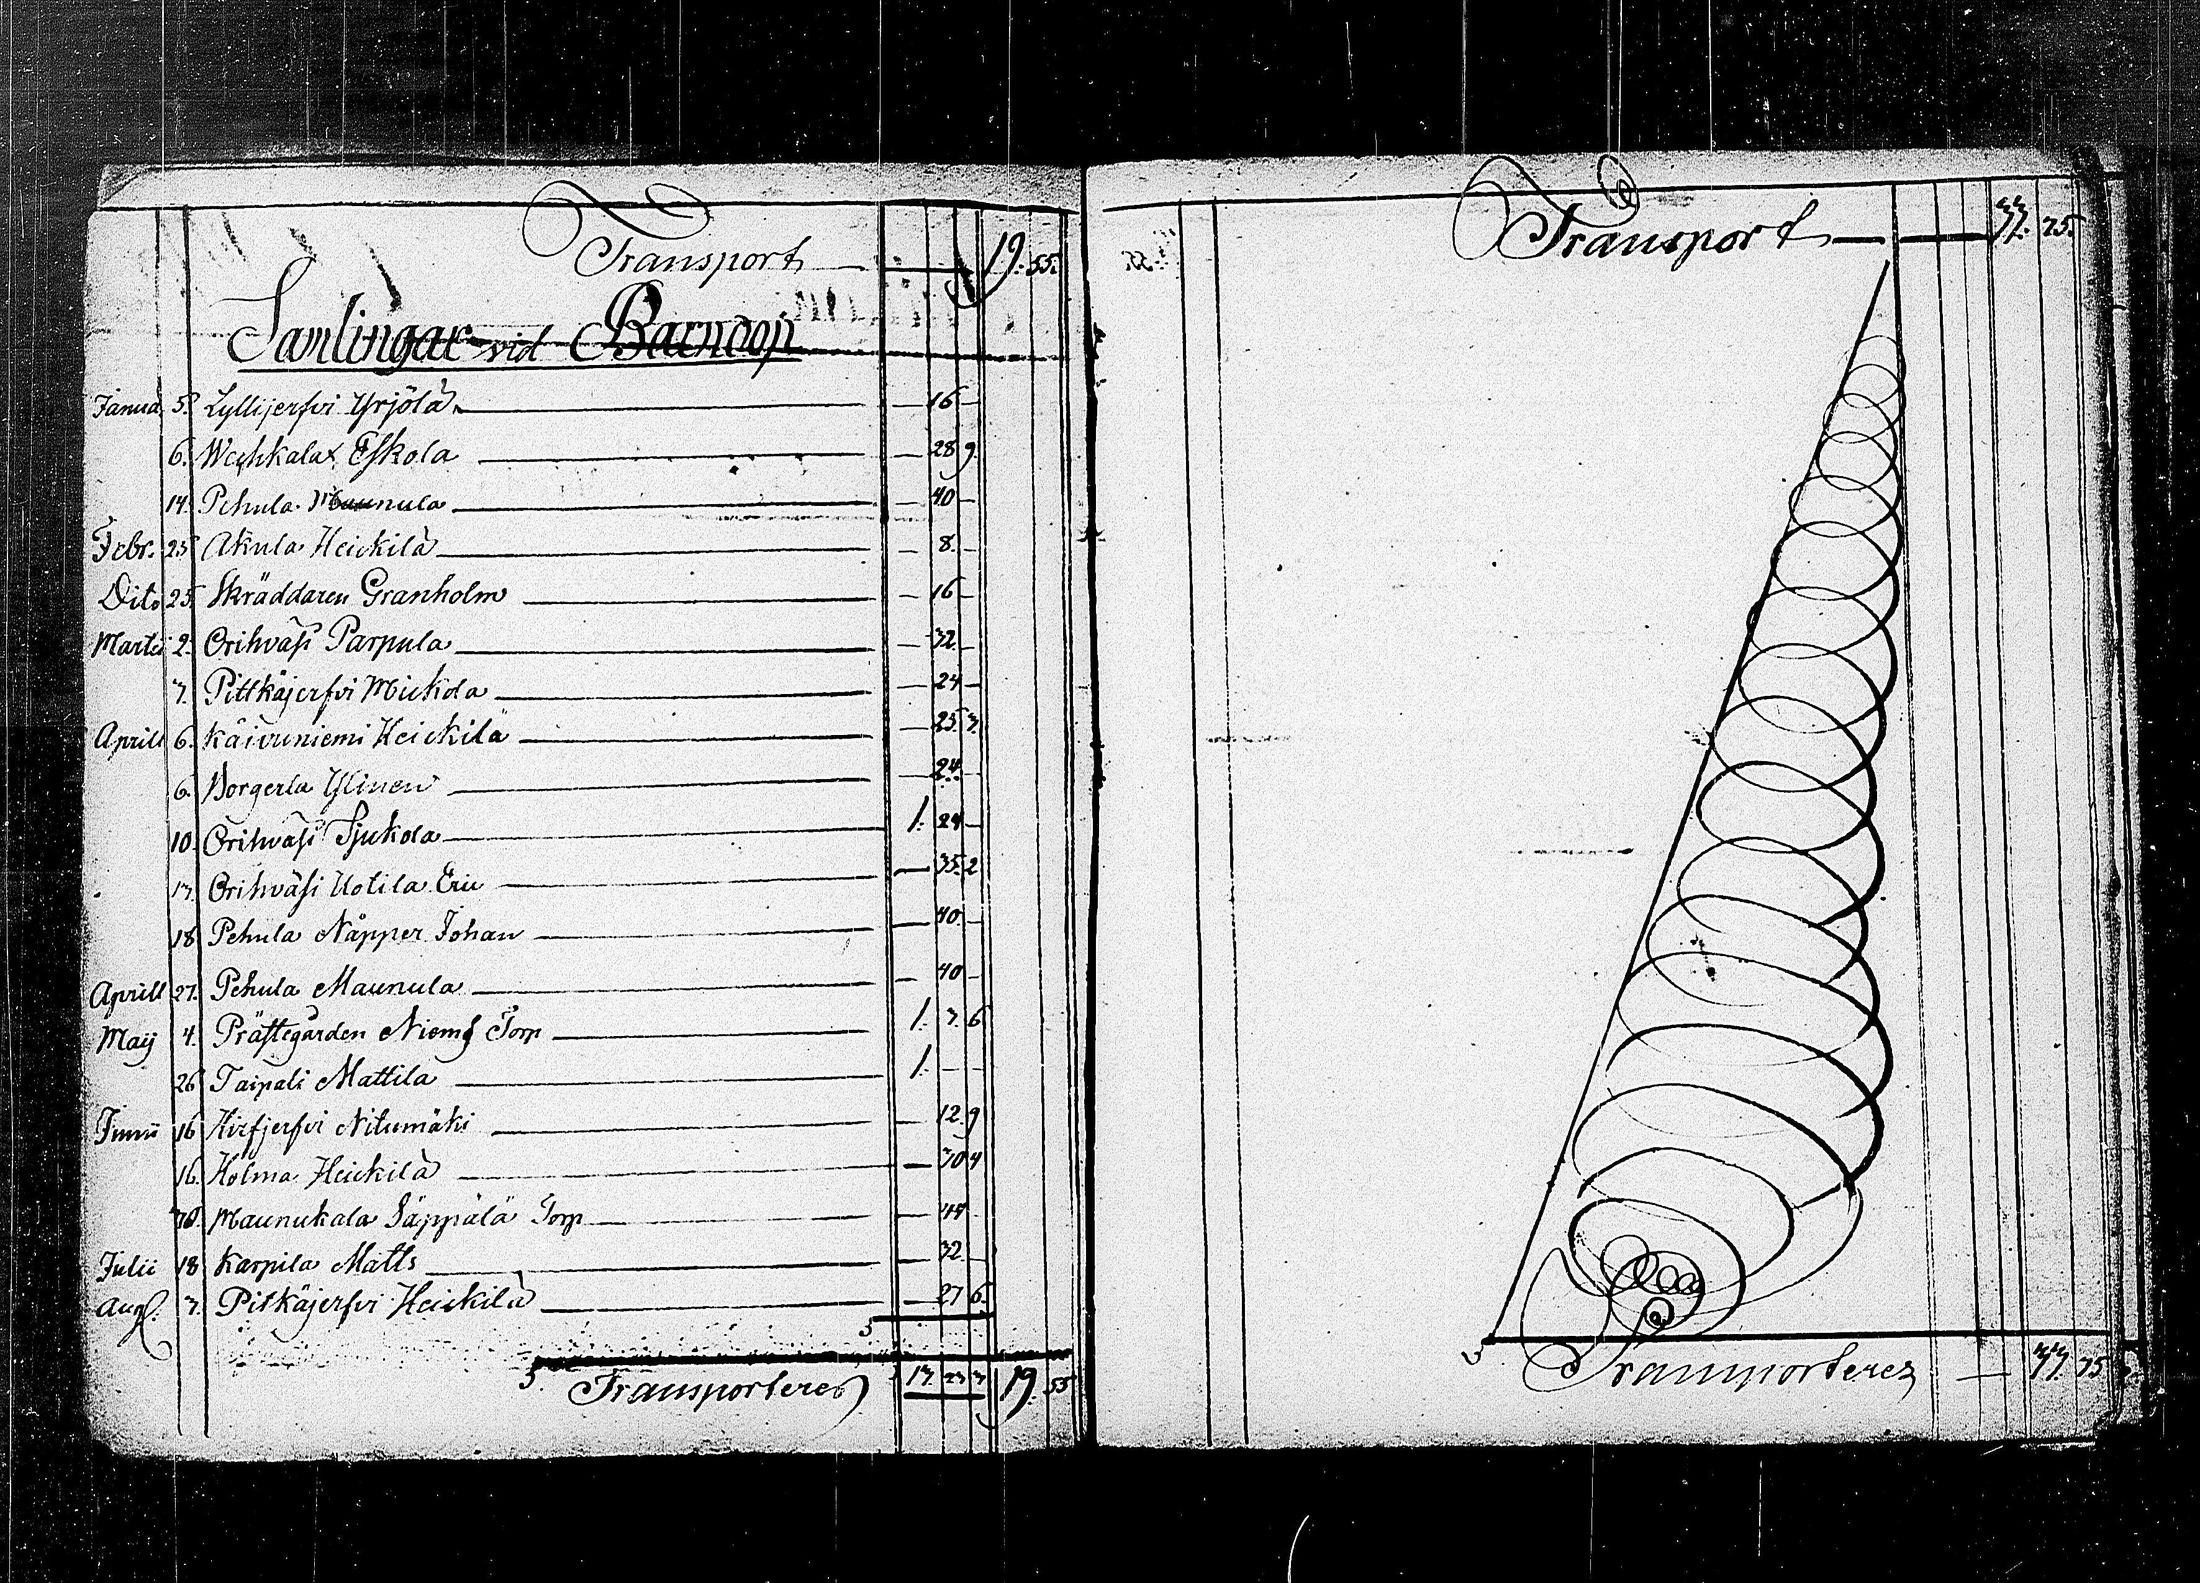 Transport — 19. 55.
Samlingar vid Barndop
Janua. 5. Lyllijerfvi Yrjölä — 16 —
6. Wechkala Eskola — 28 9.
14. Pehula Maunula — 40 —
Febr. 23 Akula Heickilä — 8. —
Dito 25. Skräddaren Granholm — 16 —
Marti 2. Orihväsi Parpula — 32 —
7. Pittkäjerfvi Mickola — 24 —
Aprill 6. Käivuniemi Heickilä — 23 7.
6. Borgerla Ylinen — 24. —
10. Orihväsi Sjukola — 1. 24 —
17. Orihväsi Uotila Eric — 35. 2
18. Pehula Näpper Johan — 40. —
Aprill 27. Pehula Maunula — 40 —
Maij 4. Prästegården Niemi Torp — 1. 7. 6
26 Taipali Mattila — 1. — —
Junii 16 Hirfjerfvi Nitumäki — 12. 9
16. Holma Heickilä — 30 4
30. Maunukala Säppälä Torp — 44 —
Julii 18 Karpila Matts — 32 —
Aug. 7. Pitkäjerfvi Heickilä — 27 6.
Transporteres 17. 23 7 19. 55
Transport — 37. 25.
Transporteres — 37. 25